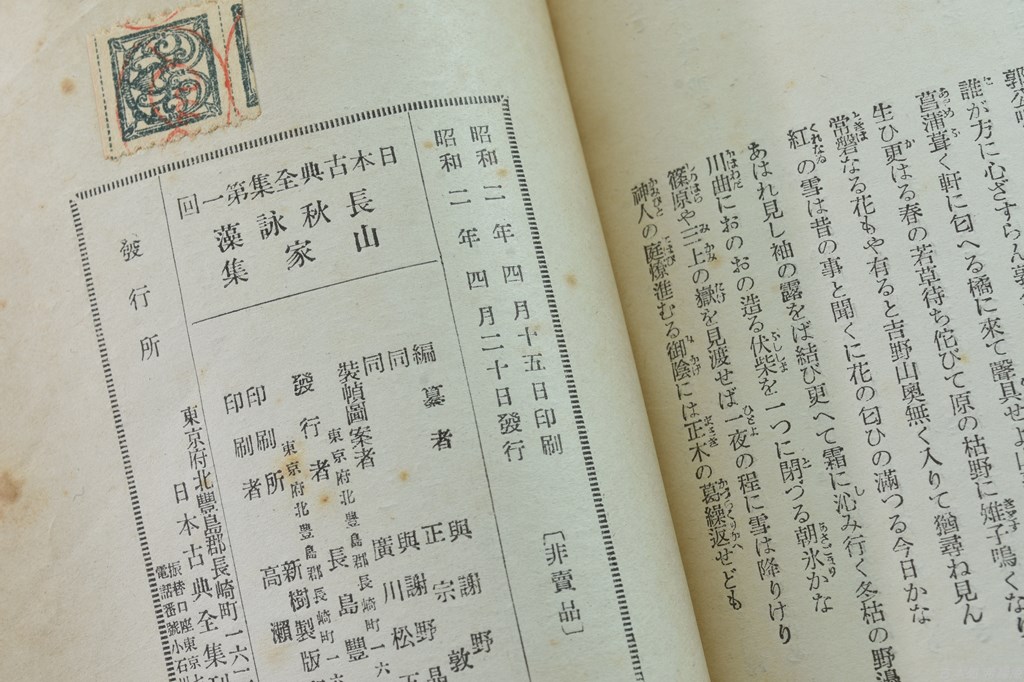 誰が方に心ざすらん
菖蒲葺く軒に匂へる橘に來て
生ひ更はる春の若草待ち侘びて原の枯野に雉子鳴くな
常磐なる花もや有ると吉野山奥無く入りて猶尋ね見ん
紅の雪は昔の事と聞くに花の匂ひの滿つる今日かな
あはれ見し袖の露をば結び更へて霜に沁み行く冬枯の野邊
川曲におのおの造る伏柴を一つに閉づる朝氷かな
篠原や三上の嶽を見渡せば一夜の程に雪は降りけり
神人の庭燎進むる御陰には正木の葛繰返せども
昭和二年四月十五日印刷
昭和二年四月二十日發行
〔非賣品〕
日本古典全集第一回
長秋詠藻
山家集
編纂者 與謝野
同 正宗敦
同 與謝野
裝幀圖案者 廣川松五
發行者 東京府北豐島郡長崎町一六
長島豐
印刷所 新樹製版
印刷者 高瀬
發行所
東京府北豐島郡長崎町一六二
日本古典全集刊
振替口座東京
電話番號小石川